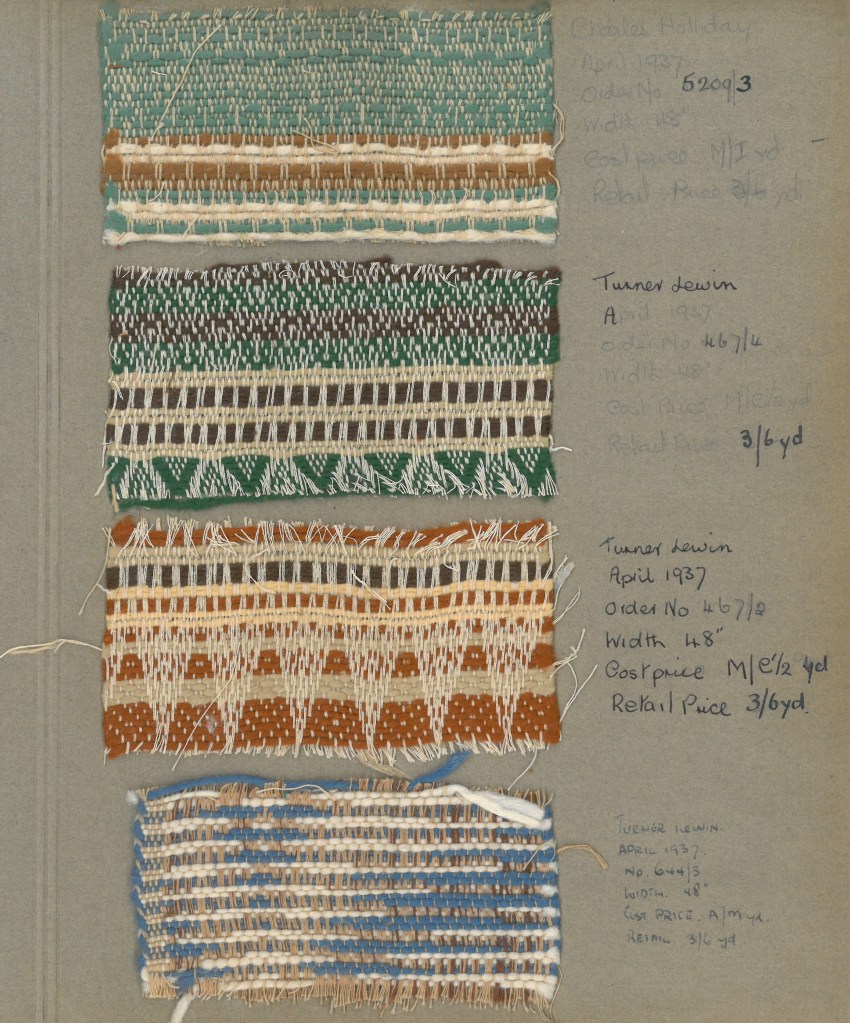 Charles Holiday
April 1937
Order No 5209/3
Width 48"
Cost price M/I yd
Retail Price 3/6 yd
Turner Lewin
April 1937
Order No 467/4
Width 48"
Cost Price
Retail Price 3/6 yd
Turner Lewin
April 1937
Order No 467/2
Width 48"
Cost price M/C½ yd
Retail Price 3/6 yd.
TURNER LEWIN.
APRIL 1937.
No. 644/3
WIDTH. 48"
COST PRICE. A/M yd.
RETAIL 3/6 yd.